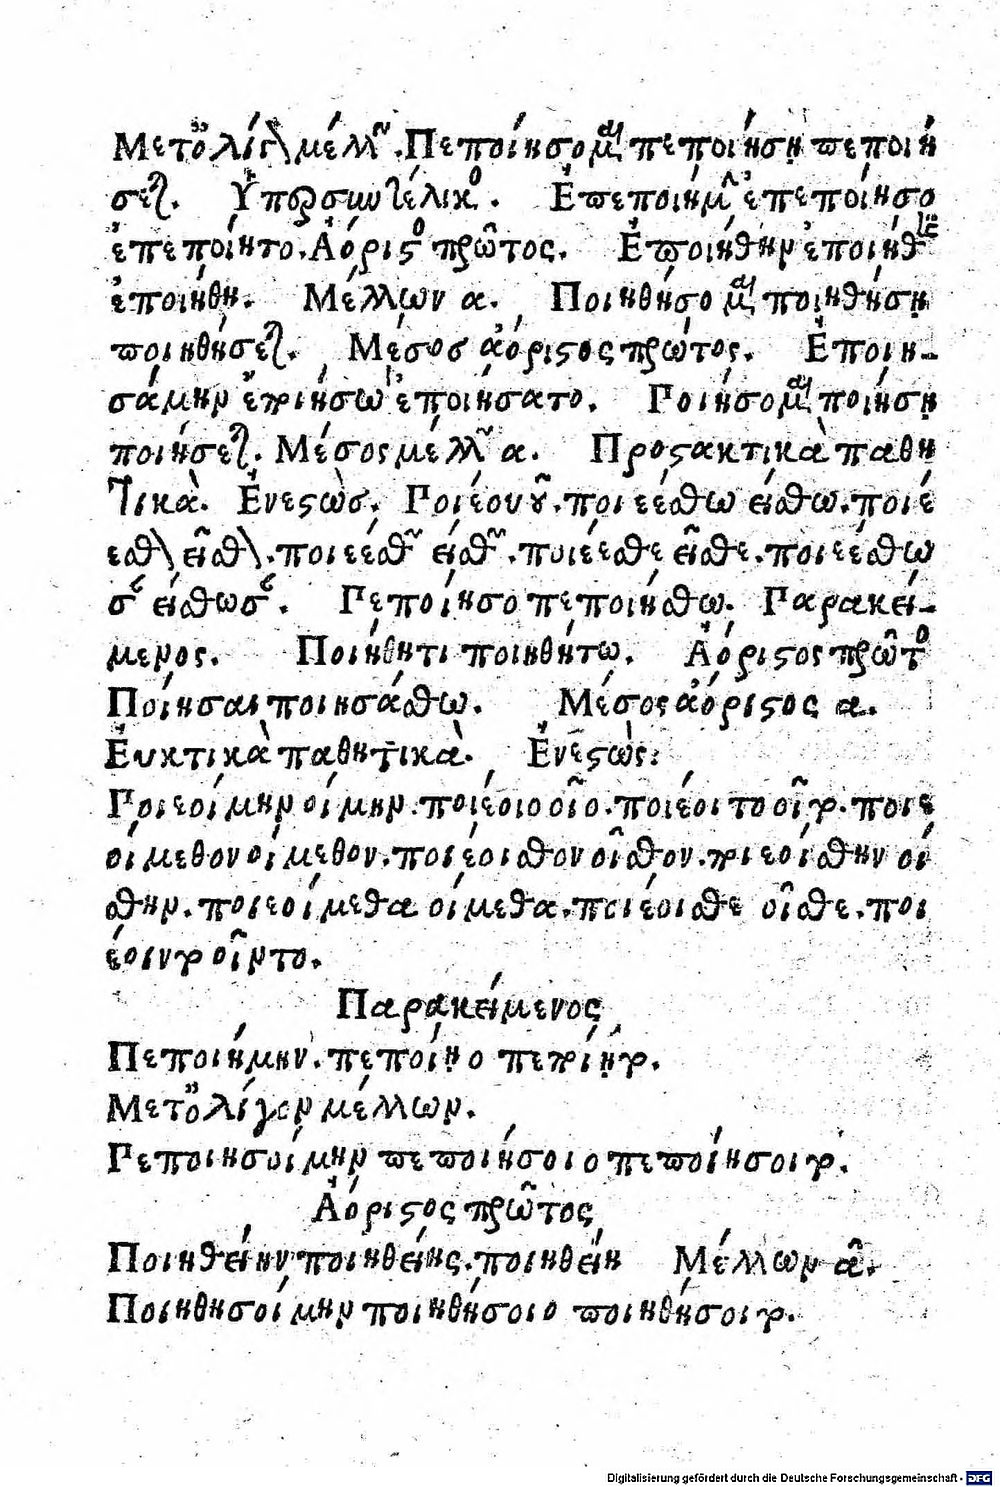 Μετ᾽ ὀλίγ\ μέλλ῀. Πεποίησομαι πεποίησῃ πεποιή
σεται. Ὑπερσυντέλικο. Ἐπεποιήμην ἐπεποίησο
ἐπεποίητο. Ἀόριστο πρῶτος. Ἐποιήθην ἐποιήθης
ἐποιήθη. Μέλλων α. Ποιηθήσομαι ποιηθήσῃ
ποιηθήσεται. Μέσοσ ἀόριστος πρώτος. Ἐποιη-
σάμην ἐποιήσω ἐποιήσατο. Ποιήσομαι ποιήσῃ
ποιήσεται. Μέσος μέλλ῀ α. Προστακτικὰ παθη
τικὰ. Ἐνεστὼσ. Ποιέου οῦ. ποιεέσθω είσθω. ποιέ
εσθ\ εῖσθ\. ποιεέσθ῀ είσθ῀. ποιέεσθε εῖσθε. ποιεέσθω
σ῾ είσθωσ῾. Πεποίησο πεποιήσθω. Παρακεί-
μενος. Ποιήθητι ποιηθήτω. Ἀόριστος πρῶτο
Ποίησαι ποιησάσθω. Μέσος ἀόριστος α.
Ἐυκτικὰ παθητικὰ. Ἐνεστὼς:
Ποιεοίμην οίμην. ποιέοιο οῖο. ποιέοιτο οῖτο. ποιε
οιμεθον οίμεθον. ποιέοισθον οῖσθον. ποιεοίσθην οί
σθην. ποιεοίμεθα οίμεθα. ποιέοισθε οῖσθε. ποι
έοιντο οῖντο.
Παρακείμενος
Πεποιήμην. πεποίῃο πεποίῃτο.
Μετ᾽ ὀλίγον μέλλων.
Πεποιησοίμην πεποιήσοιο πεποίησοιτο.
Ἀόριστος πρῶτος
Ποιηθείην ποιηθείης. ποιηθείη Μέλλων α.
Ποιηθησοίμην ποιηθήσοιο ποιηθήσοιτο.
Digitalisierung gefördert durch die Deutsche Forschungsgemeinschaft - DFG